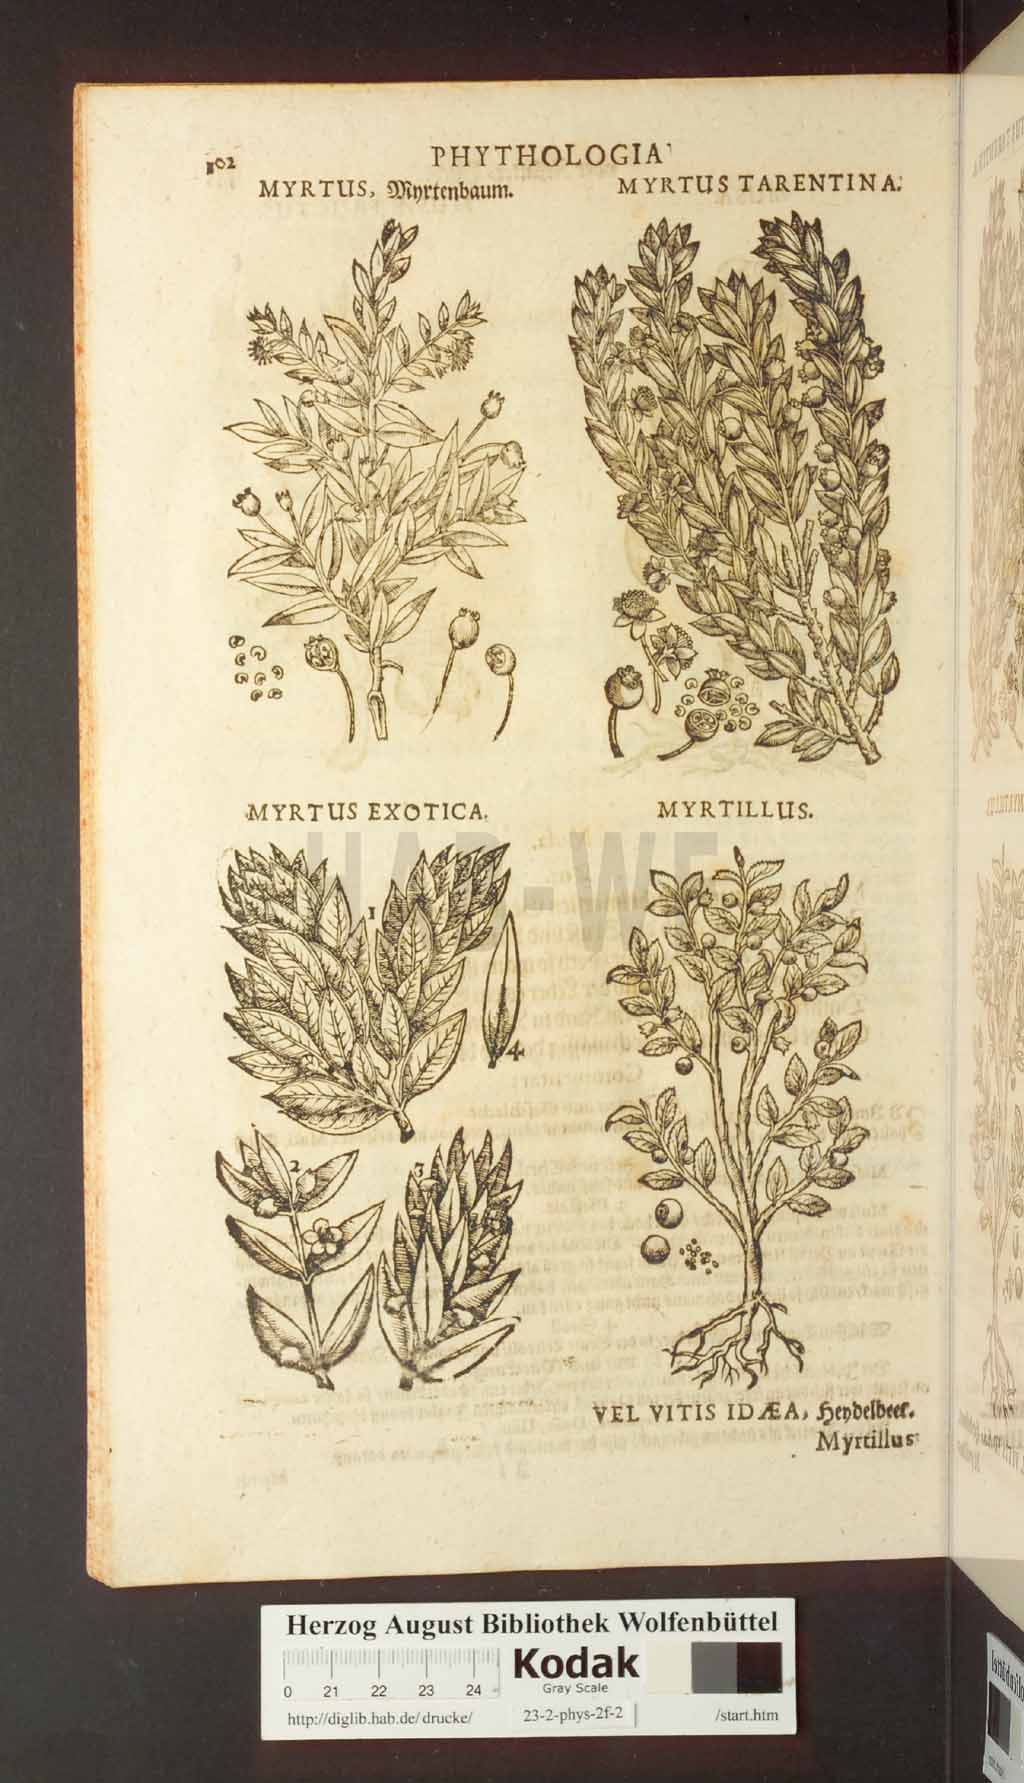 102
PHYTHOLOGIA
MYRTUS, Myrtenbaum.
MYRTUS TARENTINA.
MYRTUS EXOTICA.
MYRTILLUS.
1
4
2
3
VEL VITIS IDÆA, Heydelbeer.
Myrtillus
HAB-WF
Herzog August Bibliothek Wolfenbüttel
0 21 22 23 24
Kodak
Gray Scale
http://diglib.hab.de/drucke/ 23-2-phys-2f-2 /start.htm